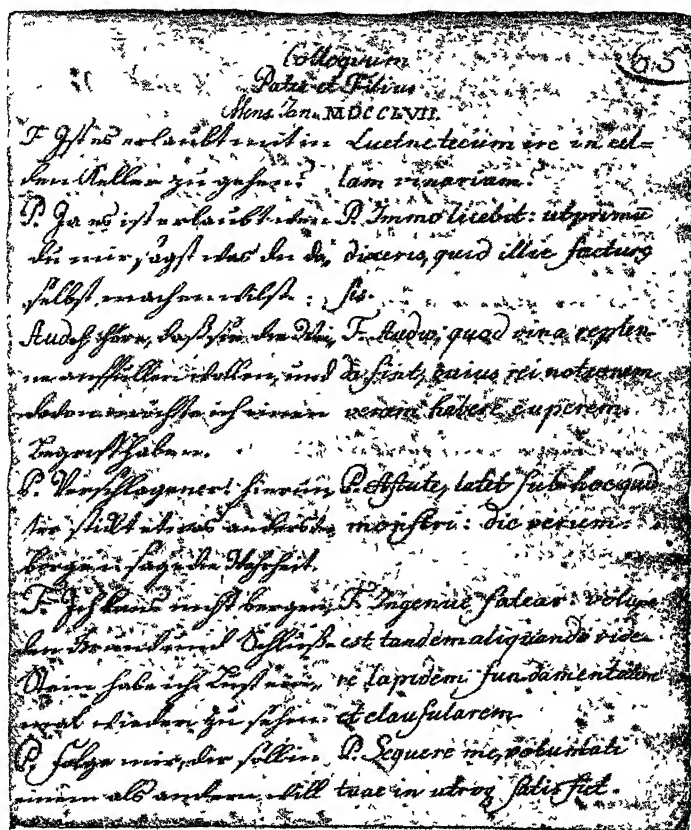 Colloquium
Pater et Filius
Mens. Jan. MDCCLVII.
65
F. Ist es erlaubt mit in
den Keller zu gehen?
P. Ja es ist erlaubt wen
du mir sagst was du da,
selbst machen wilst:
ich höre, daß sie die Wei,
ne auffüllen wollen, und
davon möchte ich einen
Begriff haben.
P. Verschlagener! hierun,
ter stickt etwas anders ver
borgen sage die Wahrheit.
F. Ich kans nicht bergen,
den Grund und Schluß-
Stein habe ich Lust ein,
mal wieder zu sehen
P. Folge mir, dir soll in
einem als andern will
Licetne tecum ire in cel=
lam vinariam?
P. Immo licebit: utprimū
dixeris, quid illic facturus
sis.
F. Audivi, quod vina replen
da sint, cuius rei notionem
veram habere cuperem.
P. Astute, latet sub hoc quid
monstri: dic verum.
F. Ingenue fatear: volupe
est tandem aliquando vide
re lapidem fundamentalem
et clausularem
P. Sequere me, voluntati
tuae in utroq satis fiet.